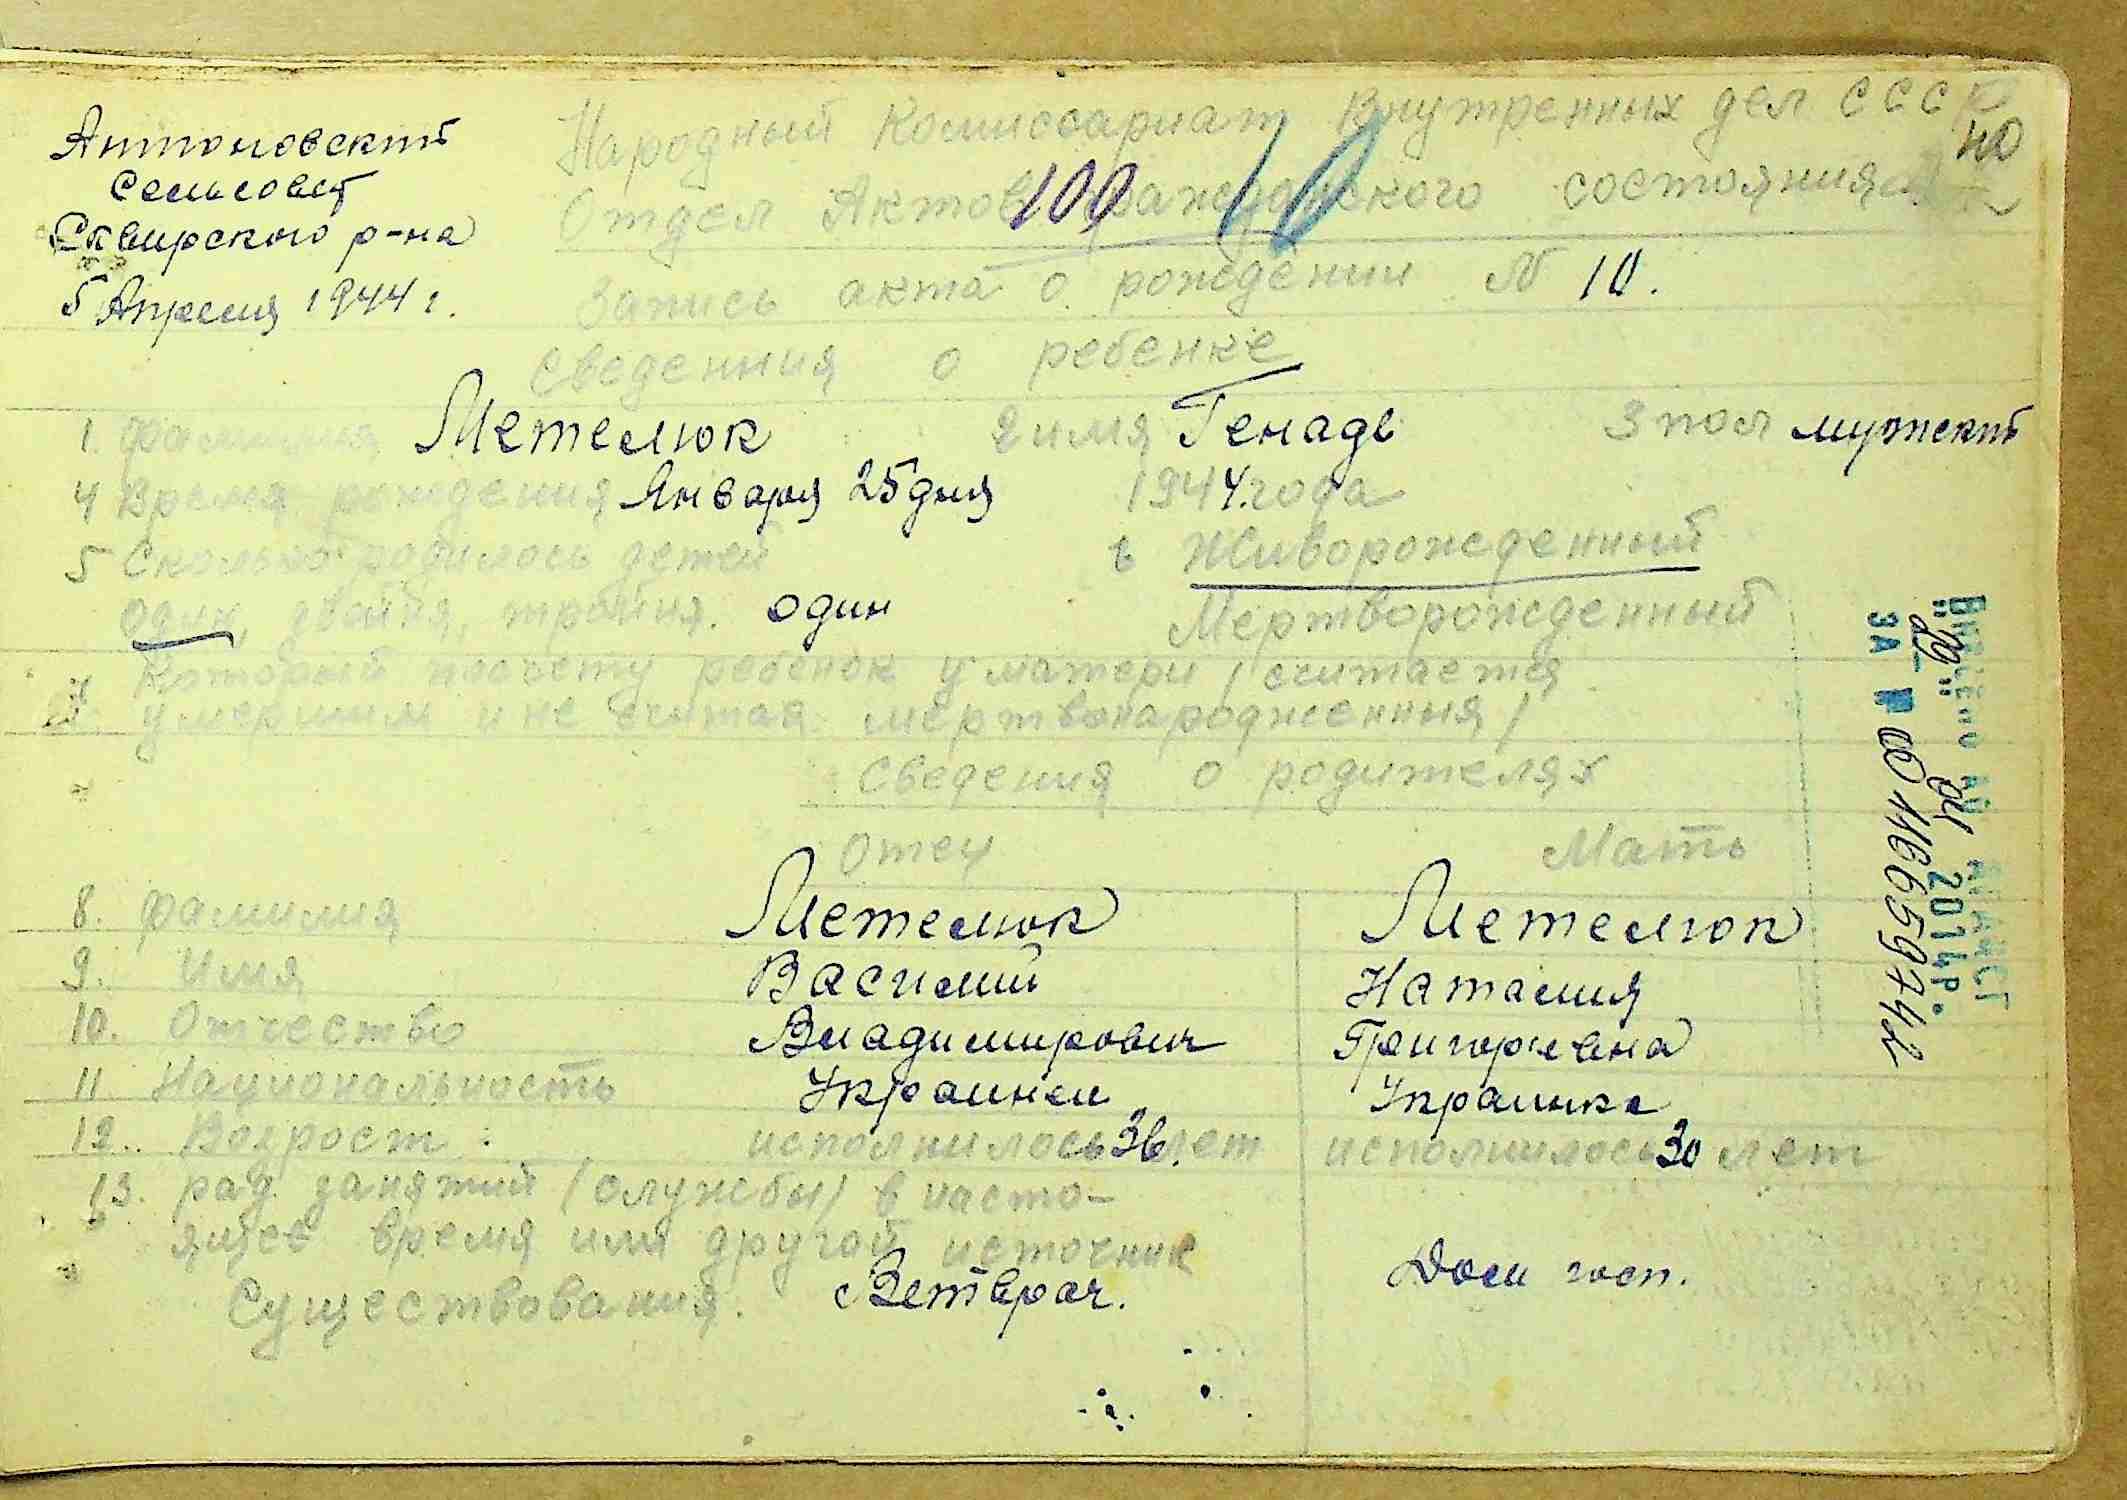 Антоновский
Сельсовет
Сквирского р-на
5 Апреля 1944 г.
Народный Комиссариат Внутренних дел СССР
110
Отдел Актов Гражданского состояния
100 10
Запись акта о рождении N 10.
Сведенния о ребенке
1. фамилия Метелюк 2 имя Генадь 3 пол мужский
4 Время рождения Января 25 дня 1944 года
5 Сколько родилось детей 6 Живорожденный
один, двайня, тройня. один Мертворожденный
7 Который посчету ребенок у матери / считается
умершим и не считая мертвонародженныя /
Сведения о родителях
Отец Мать
8. фамилия Метелюк Метелюк
9. Имя Василий Наталия
10. Отчество Владимирович Григорьевна
11 Национальность Украинец Украинка
12. Возрост: исполнилось 36 лет исполнилось 30 лет
13. рад занятий (службы) в насто-
ящее время или другой источник
Существования. Ветврач. Дом госп.
Внесено до ДРАЦСГ
"29" 04 2014р.
ЗА № 00116659742